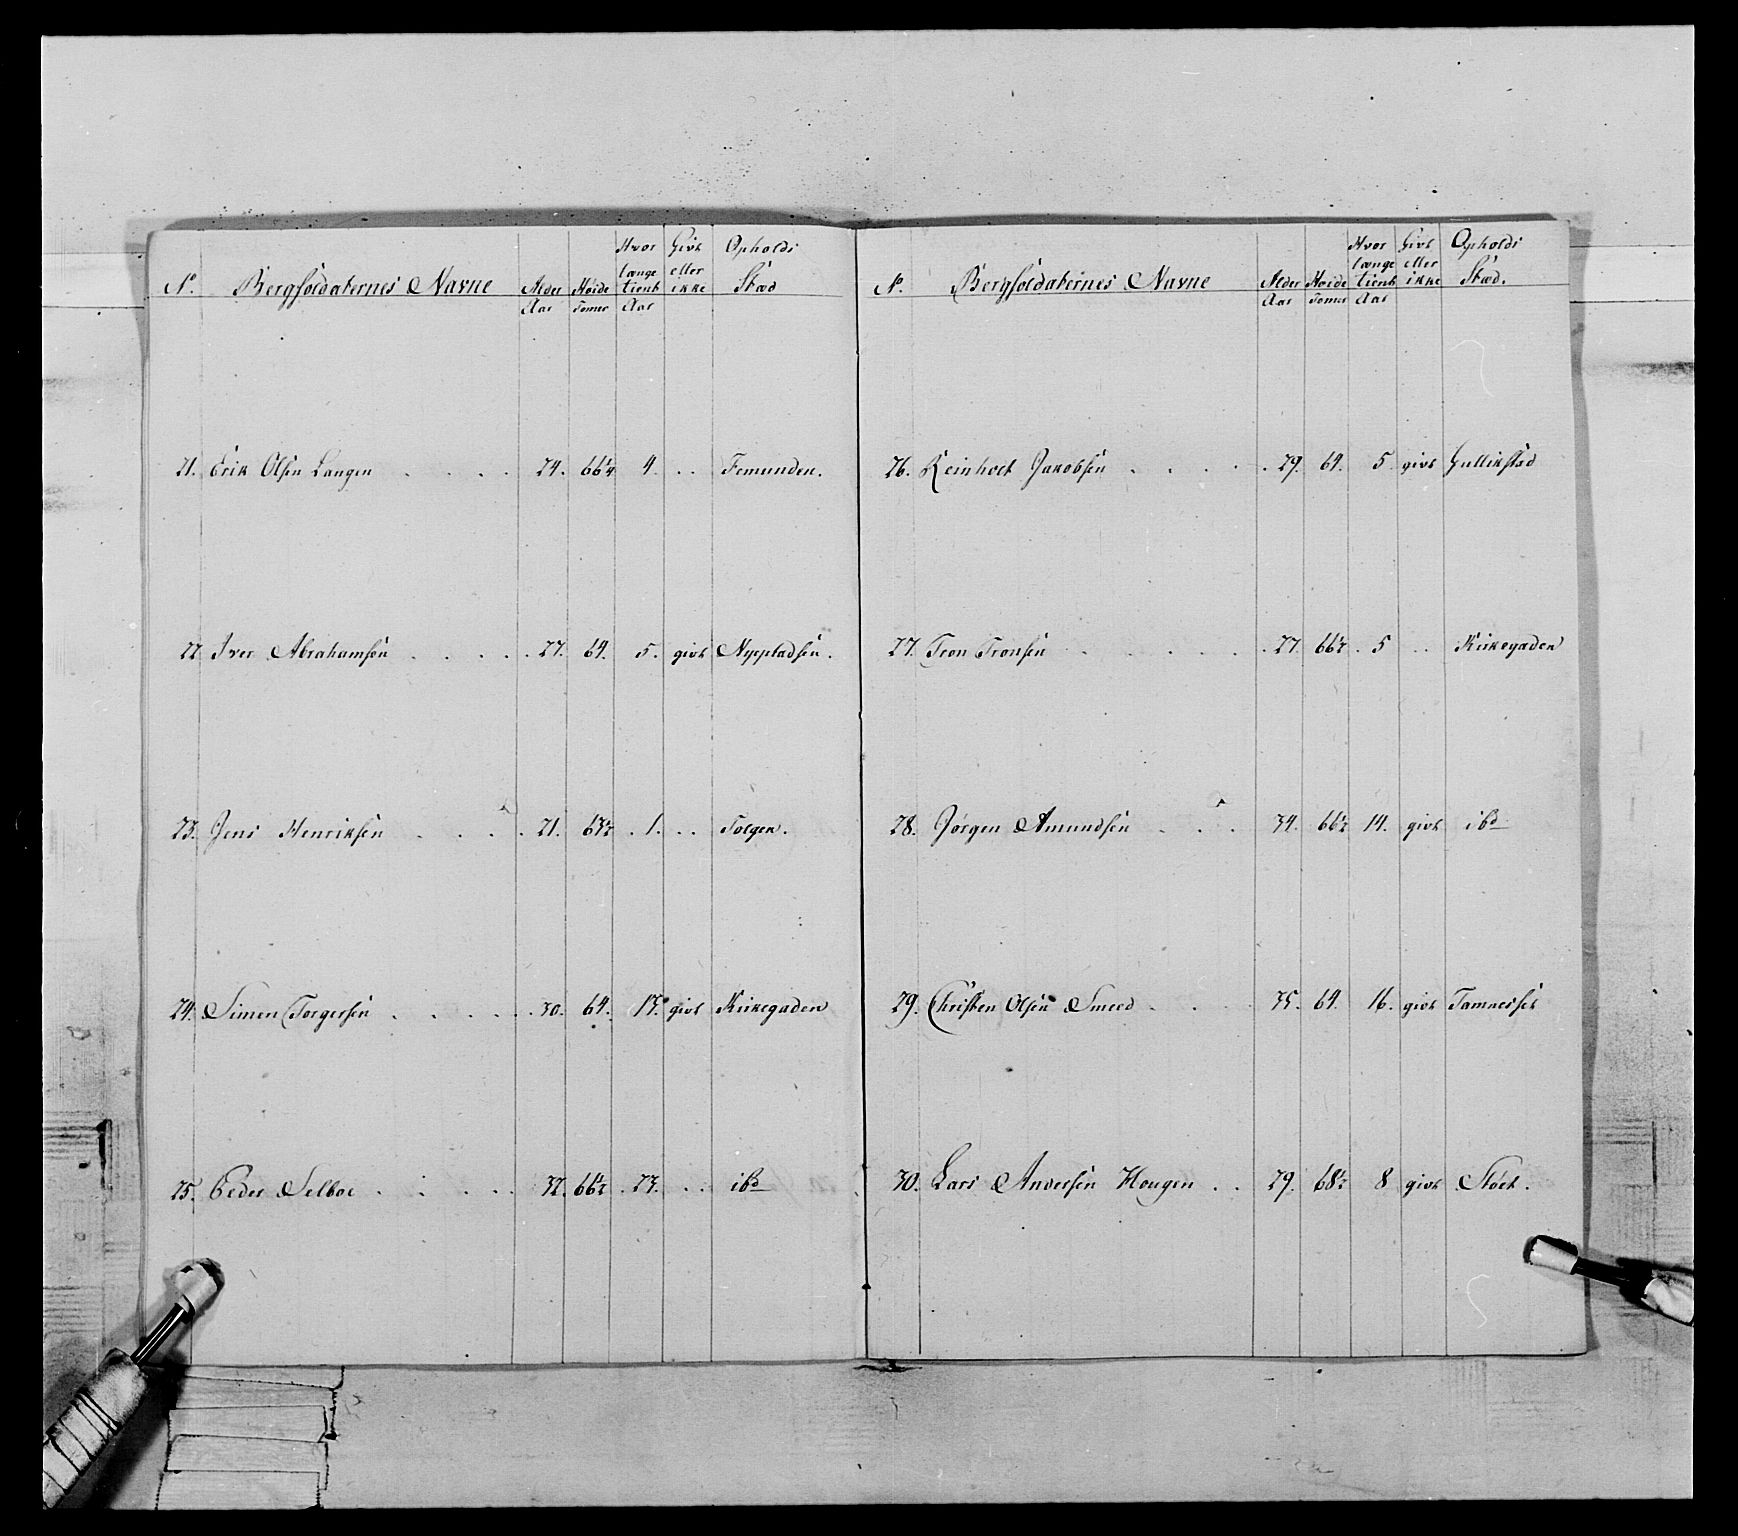 No. Bergsoldaternes Navne Alder Aar Høide Tomer Hvor længe tient Aar Givt eller ikke Opholds Stæd
21. Erik Olsen Langen . . . . 24. 66¼ 4. . . Femunden.
22 Iver Abrahamsen . . . . . 27. 64. 5. givt
23. Jens Henriksen . . . . 21. 63½ . 1. . . Tolgen.
24. Simen Torgersen . . . . . 30. 64. 13. givt Kirkegaden
25. Peder Selboe . . . . . 32. 66½ . 23. . . ibd
No. Bergsoldaternes Navne Alder Aar Høide Tomer Hvor længe tient Aar Givt eller ikke Opholds Stæd.
26. Reinholt Jakobsen . . . . . 29. 64. 5. givt Gullikstad
27. Tron Tronsen . . . . . . 27. 66½ . 5 . . Kirkegaden
28. Jørgen Amundsen . . . 34. 66½ 14. givt ibd
29. Christen Olsen Smeed . . . 35. 64. 16. givt Tamnesset
30. Lars Andersen Hougen . . 29. 68½ 8 givt Støet.